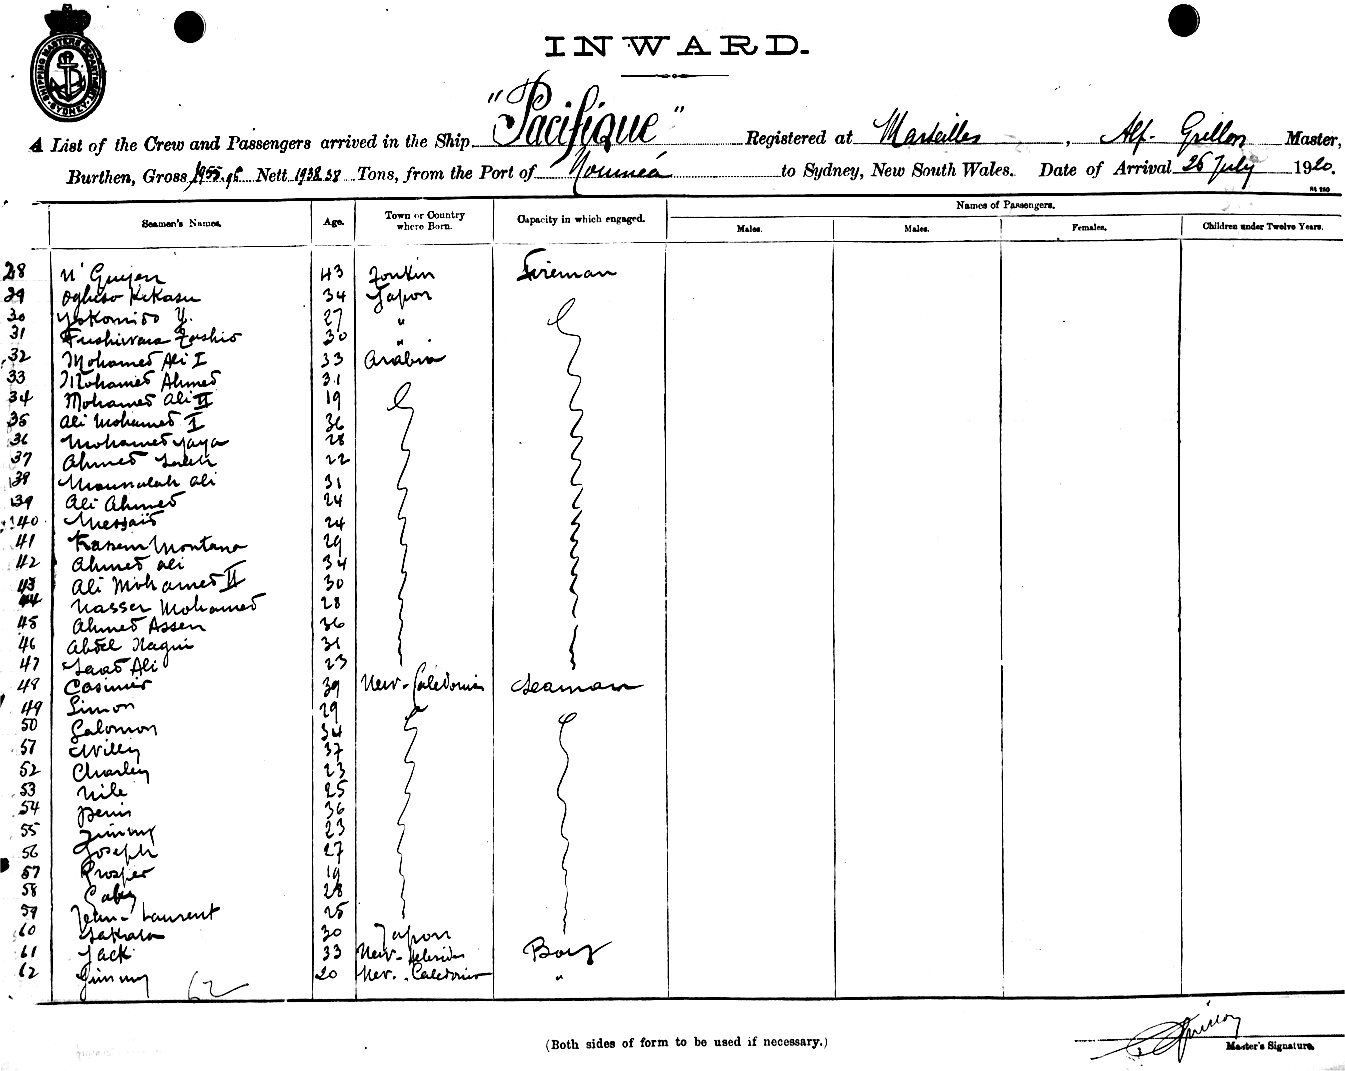 SHIPPING MASTERS DEPARTMENT SYDNEY
INWARD.
A List of the Crew and Passengers arrived in the Ship "Pacifique" Registered at Marseilles, Alf. Grillon Master,
Burthen, Gross Nett 1938.38 Tons, from the Port of Nouméa to Sydney, New South Wales. Date of Arrival 26 July 1920.
Seamen's Names. Age. Town or Country where Born. Capacity in which engaged. Names of Passengers.
Males. Males. Females. Children under Twelve Years.
28 N'Guyen 43 Tonkin Fireman
29 Oghiso Kikasu 34 Japon
30 Yokomiso Y. 27 "
31 Fushiwara 30 "
32 Mohamed Ali I 33 Arabia
33 Mohamed Ahmed 31
34 Mohamed Ali II 19
35 Ali Mohamed I 36
36 Mohamed Yaya 28
37 Ahmed Saleh 22
38 Ali 31
39 Ali Ahmed 24
40 Messaid 24
41 Kassem Montana 29
42 Ahmed Ali 34
43 Ali Mohamed II 30
44 Nasser Mohamed 28
45 Ahmed Assen 36
46 Abdel Nagui 31
47 Saad Ali 23
48 Casimir 39 New-Caledonia Seaman
49 Simon 29
50 Salomon 34
51 Willy 37
52 Charley 23
53 Nile 25
54 Denis 36
55 Jimmy 23
56 Joseph 27
57 Prosper 19
58 Gaby 28
59 Jean-Laurent 25
60 30 Japon
61 Jack 33 New-Hebrides Boy
62 Jimmy 20 New-Caledonia "
62
(Both sides of form to be used if necessary.)
Grillon
Master's Signature.